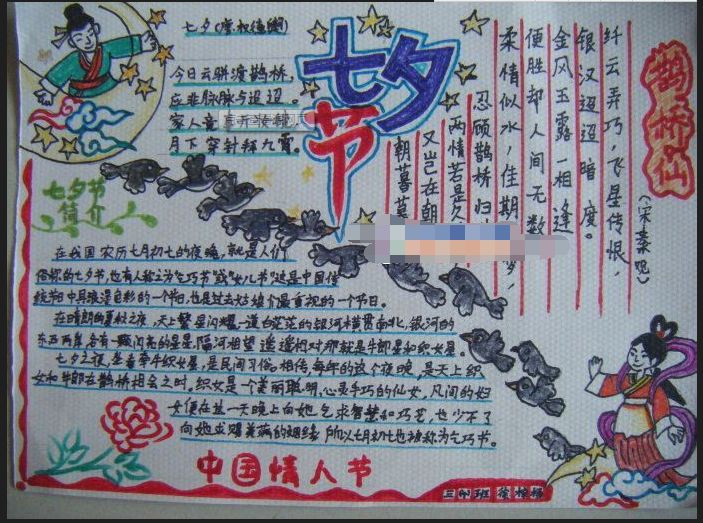 七夕节
七夕(唐·权德舆)
今日云骈渡鹊桥，
应非脉脉与迢迢。
家人竟喜开妆镜
月下穿针拜九霄。
鹊桥仙
(宋秦观)
纤云弄巧，飞星传恨，
银汉迢迢暗度。
金风玉露一相逢
便胜却人间无数
柔情似水，佳期
梦，
忍顾鹊桥归
两情若是久
又岂在朝
朝暮暮
七夕节
简介
在我国农历七月初七的夜晚，就是人们
俗称的七夕节，也有人称之为乞巧节或女儿节，这是中国传
统节日中具浪漫色彩的一个节日，也是过去姑娘们最重视的一个节日。
在晴朗的夏秋之夜，天上繁星闪耀一道白茫茫的银河横贯南北，银河的
东西两岸，各有一颗闪亮的星星，隔河相望 遥遥相对那就是牛郎星和织女星。
七夕之夜，坐看牵牛织女星，是民间习俗。相传，每年的这个夜晚，是天上织
女和牛郎在鹊桥相会之时。织女是一个美丽聪明，心灵手巧的仙女，凡间的妇
女便在这一天晚上向她乞求智慧和巧艺，也少不了
向她求赐美满的姻缘，所以七月初七也被称为乞巧节。
中国情人节